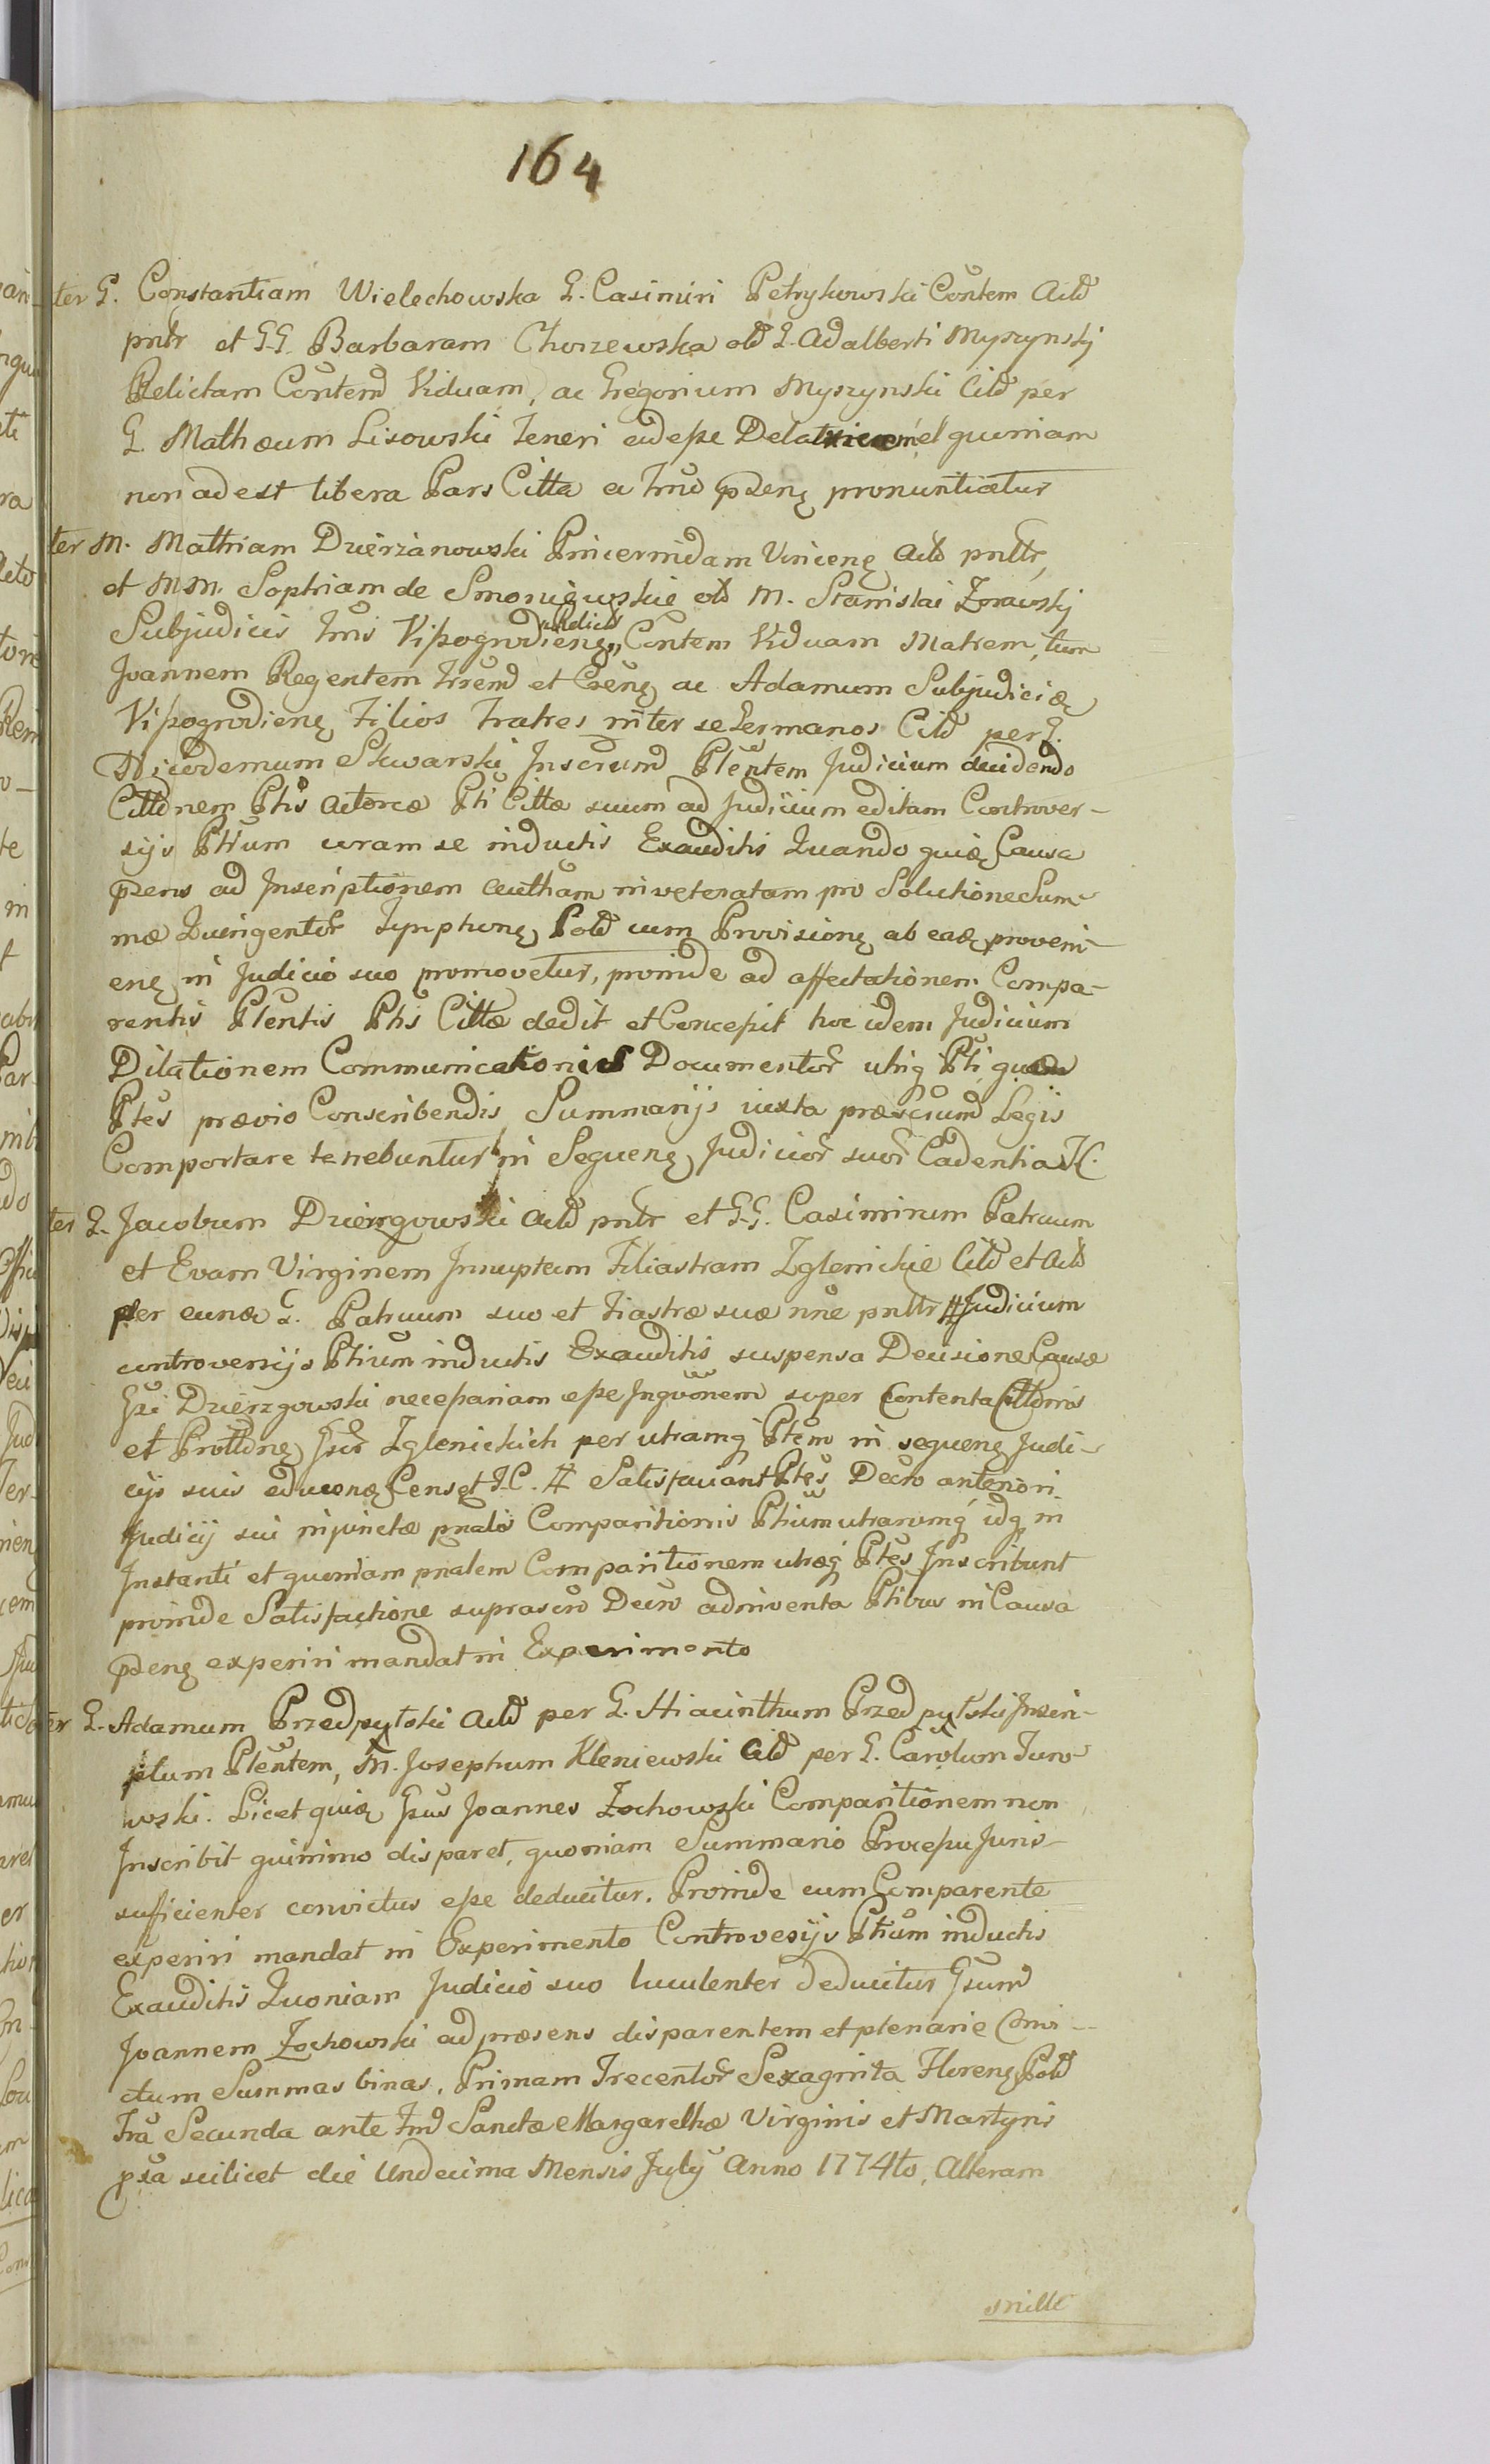 164
ter G. Constantiam Wielechowska G. Casimiri Petrykowski Contem Actd
pntr et G.G. Barbaram Chorzewska old G. Adalberti Myszynskj
Relictam Contemd Viduam, ac Gregorium Myszynski Citd per
G. Mathæum Lisowski teneri eidesse et quoniam
non adest libera Pars Citta a Tmo pseng pronuntiatur
ter M. Mathiam Dzierzanowski Pincernidam Vinceng Actd pnltr,
et MM. Sophiam de Smoniewskie old M. Stanislai Zorawskj
Subjudicis Trris Vissogrodieng,, relictd Contem Viduam Matrem, tum
Joannem Regentem Trrend et Cseng ac Adamum Subjudiciæ
Vissogrodieng Filios Fratres inter se Germanos Citd per G.
Nicodemum Skwarski Inscrumd Plentem Judicium decidendo
Cittdnem Ptis Actoreæ Pti Cittæ suum ad Judicium editam Controver-
sijs Ptium coram se inductis Exauditis Quando quidę Causa
psens ad Inscriptionem autham inveteratam pro Solutione Sum-
mæ Quingentor Tympfong Pold cum Provisiong ab eadę proveni-
eng in Judicio suo promovetur, proinde ad affectationem Compa-
rentis Plentis Ptis Cittæ dedit et Concessit hoc idem Judicium
Dilationem Communicationis Documentor utriq Pti quæ
Ptes prævio Conscribendis Summarijs iuxta præscrumd Legis
Comportare tenebuntur in Sequeng Judicior suor Cadentia JC.
ter G. Jacobum Dziergowski Actd pntr et G.G. Casimirum Patruum
et Evam Virginem Innuptam Filiastram Zglenickie Citd et Actd
per eundę G. Patruum suo et Fiastræ suæ nne pnltr # Judicium
controversijs Ptium inductis Exauditis suspensa Decisione Causæ
Gsi Dzierzgowski necessariam esse Inqvonem super Contenta Cittdnis
et Prottdng Gsor Zglenickich per utramq Ptem in sequeng Judi-
cijs suis educendę Censet J.C. # Satisfaciant Ptes Decro anteriori
Judicij sui injunctæ pnalis Comparitionis Ptium utrarumq idq in
Instanti et quoniam pnalem Comparitionem utræq Ptes Inscribunt
proinde Satisfactione suprascro Decro adinventa Ptibus in Causa
pseng experiri mandat in Experimento
ter G. Adamum Przedpytski Actd per G. Hiacinthum Przedpytski Inscri-
ptum Plentem, M. Josephum Kleniewski Citd per G. Carolum Turo-
wski. Licet quidę Gsus Joannes Zochowski Comparitionem non
Inscribit quinimo disparet, quoniam Summario Processu Juris
sufficienter convictus esse deducitur. Proinde cum Comparente
experiri mandat in Experimento Controvesijs Ptium inductis
Exauditis Quoniam Judicio suo luculenter deducitur Gsumd
Joannem Zochowski ad præsens disparentem et plenarie Convi-
ctum Summas binas, Primam Trecentor Sexaginta Floreng Pold
Fra Secunda ante Fmd Sanctæ Margarethæ Virginis et Martyris
psa scilicet die Undecima Mensis July Anno 1774to, Alteram
mille